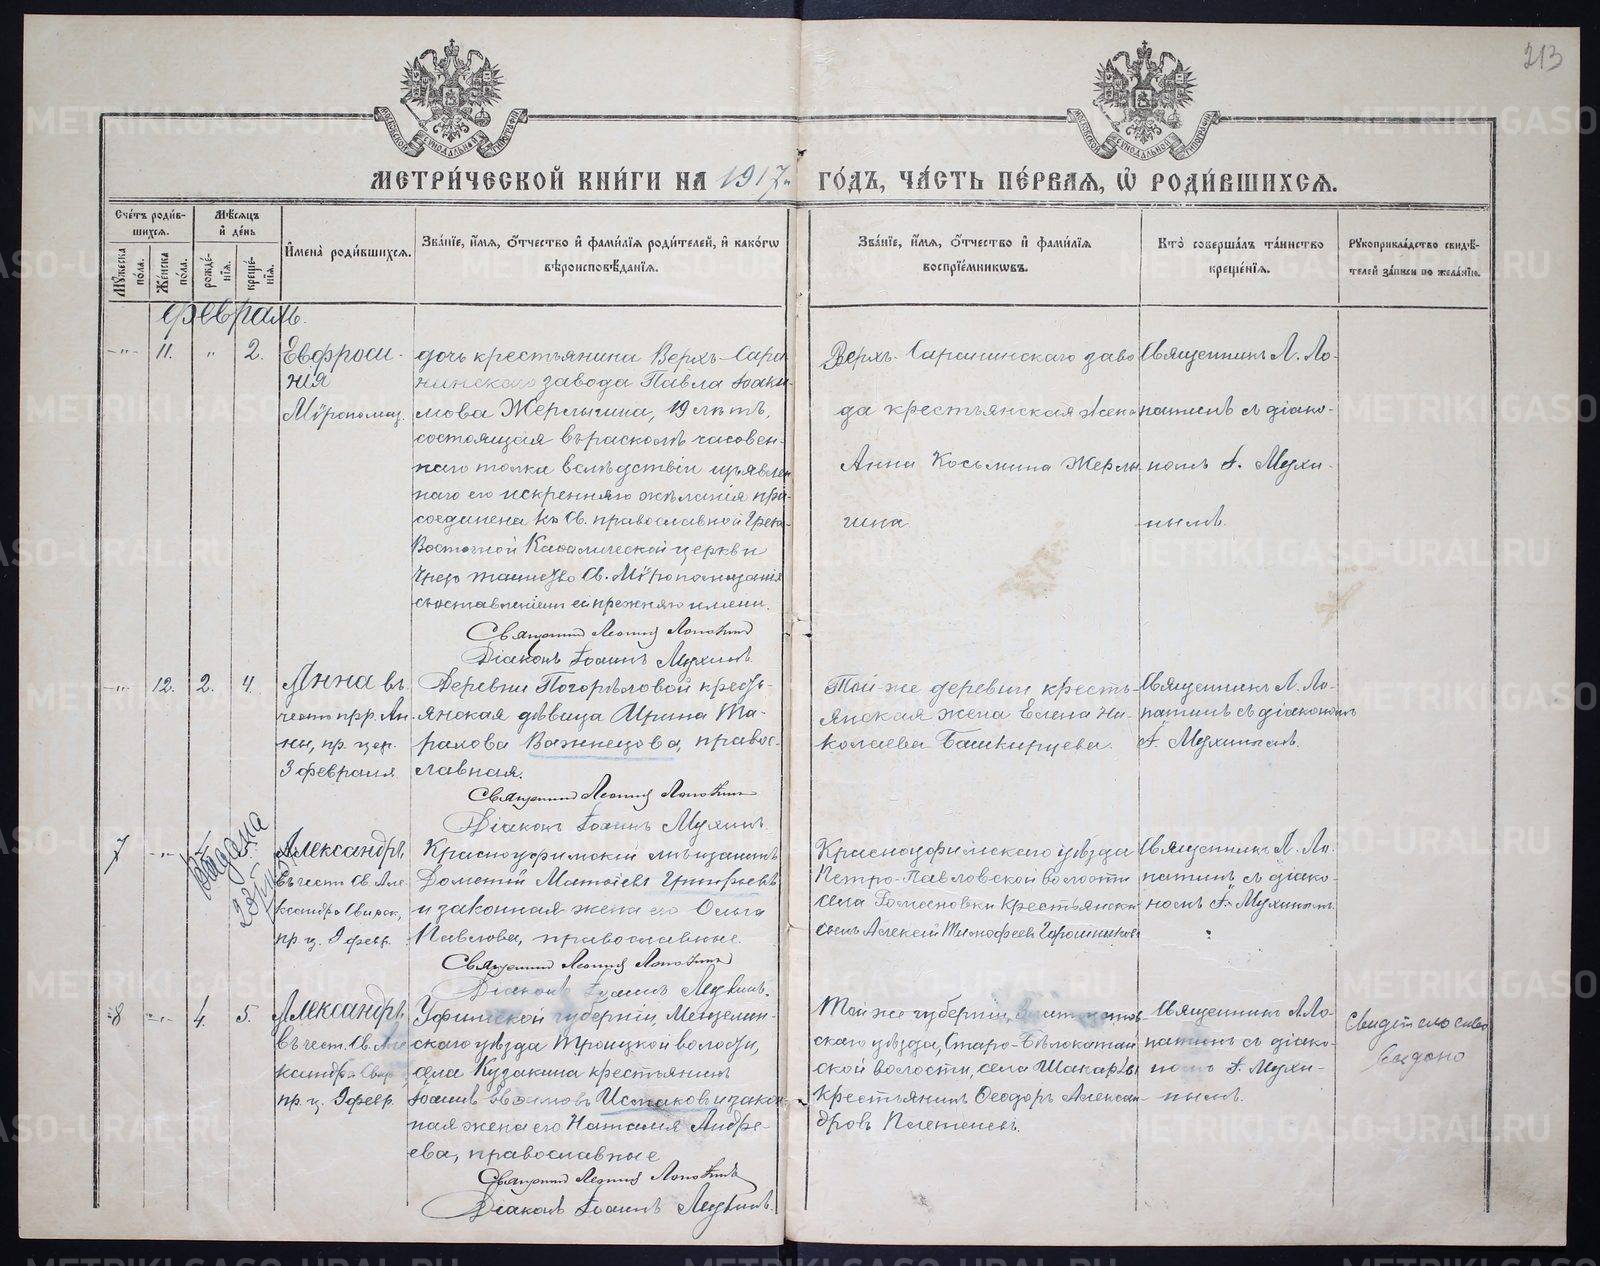 213
МЕТРИ́ЧЕСКОЙ КНИ́ГИ НА 1917й ГО́ДЪ, ЧА́СТЬ ПЕ́РВАЯ, Ѡ҆ РОДИ́ВШИХСѦ.
Сче́тъ роди́в-
шихсѧ.
Мꙋ́жеска по́ла.
Же́нска по́ла.
Мѣ́сѧцъ и҆ де́нь
рожде́-нїѧ.
креще-нїѧ.
И҆мена̀ роди́вшихсѧ.
Зва́нїе, и҆́мѧ, ѻ҆́тчество и҆ фами́лїѧ роди́телей, и҆ како́гѡ
вѣроисповѣ́данїѧ.
Зва́нїе, и҆́мѧ, ѻ҆́тчество и҆ фами́лїѧ
воспрїе́мникѡвъ.
Кто̀ соверша́лъ та́инство
креще́нїѧ.
Рꙋкоприкла́дство свидѣ́-
телей за́писи по жела́нїю.
Февраль.
-"- 11. " 2.
Евфроси-
нія
Мѵропомаз.
дочь крестьянина Верхъ-Сара
нинскаго завода Павла Іоаки-
мова Жерлыгина, 19 лѣтъ,
состоящая въ расколѣ часовен-
наго толка вслѣдствіи изъявлен
наго ею искренняго желанія при-
соединена къ Св. православной Греко-
Восточной Каѳолической церкви
чрезъ таинство Св. Мѵропомазанія
съ оставленіемъ ей прежняго имени.
Священникъ Леонидъ Лопатинъ
Діаконъ Іоаннъ Мухинъ.
Верхъ-Саранинскаго заво
да крестьянская жена
Анна Косьмина Жерлы
гина
Священникъ Л. Ло-
патинъ съ діако-
номъ І. Мухи-
нымъ.
-"- 12. 2. 4.
Анна въ
честь прр. Ан-
ны, пр. цер.
3 февраля
Деревни Погорѣловой кресть-
янская дѣвица Ирина Та-
рахова Важнецова, правос-
лавная.
Священникъ Леонидъ Лопатинъ
Діаконъ Іоаннъ Мухинъ
Той-же деревни кресть-
янская жена Елена Ни-
колаева Башкирцева.
Священникъ Л. Ло-
патинъ съ діакономъ
І. Мухинымъ.
7 -"- 5.
Александръ
въ честь Св. Але
ксандра Свирск,
пр. ц. 9 февр.
Красноуфимскій мѣщанинъ
Дометій Матѳіевъ Григорьевъ
и законная жена его Ольга
Павлова, православные.
Священникъ Леонидъ Лопатинъ
Діаконъ Іоаннъ Мухинъ.
Красноуфимскаго уѣзда
Петро-Павловской волости
села крестьянскій
сынъ Алексій Тимофеевъ
Священникъ Л. Ло-
патинъ съ діако-
номъ І. Мухинымъ
8 -"- 4. 5.
Александръ
въ чест. Св. Але
ксандра Свир
пр. ц. 9 февр.
Уфимской губерніи, Мензелин-
скаго уѣзда Троицкой волости,
села Кузакина крестьянинъ
Іоаннъ Исаковъ и закон
ная жена его Наталія Андре-
ева, православные
Священникъ Леонидъ Лопатинъ
Діаконъ Іоаннъ Мухинъ.
Той же губерніи, Златоустов
скаго уѣзда, Старо-Бѣлокатай
ской волости, села Шакарлы
крестьянинъ Ѳеодоръ Алексан
дровъ
Священникъ Л. Ло-
патинъ съ діако-
номъ І. Мухи-
нымъ.
METRIKI.GASO-URAL.RU